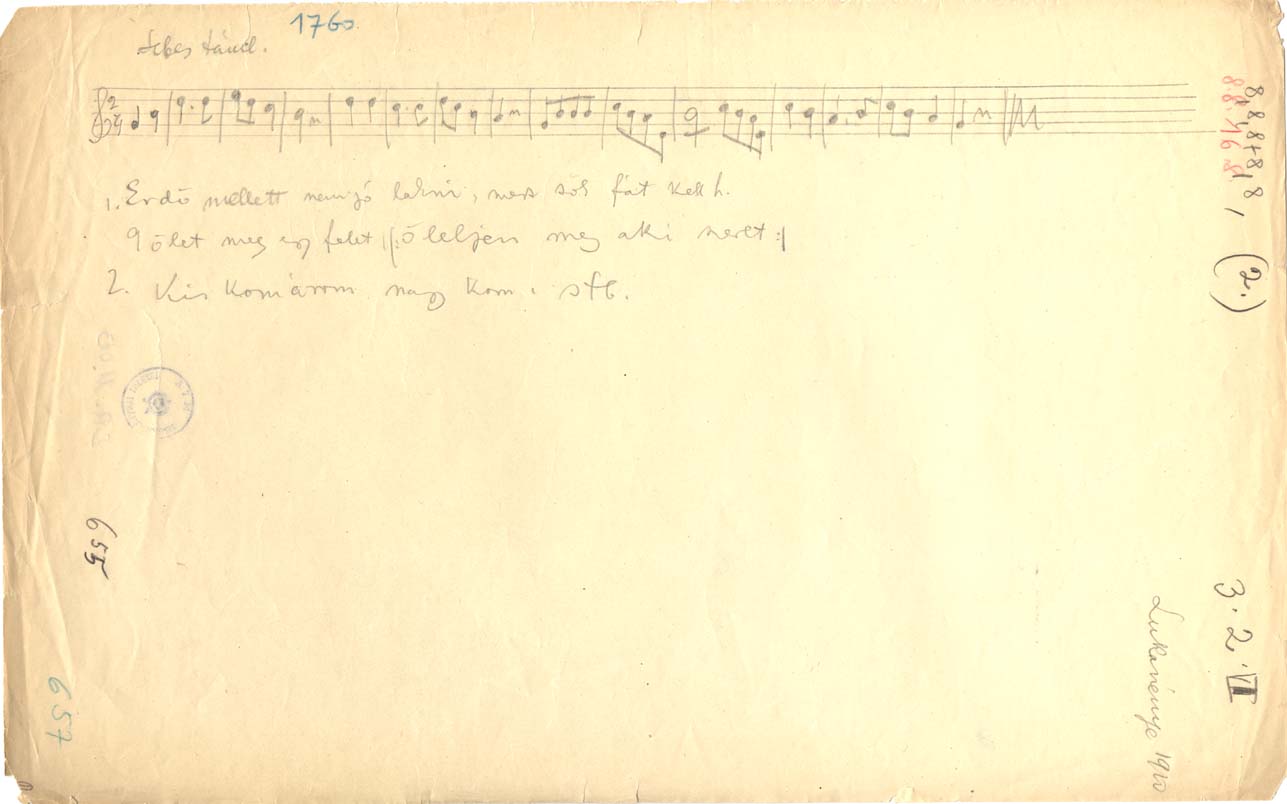 1760.
2
4
1. Erdő mellett nem jó lakni, mer sok fát kell h.
9 ölet meg egy felet, |: öleljen meg aki szeret :|
2. Kis Komárom nagy Kom. stb.
8, 8, 8+8, 8,
(2.)
655
657
3. 2. VI
Lukanénye 1910